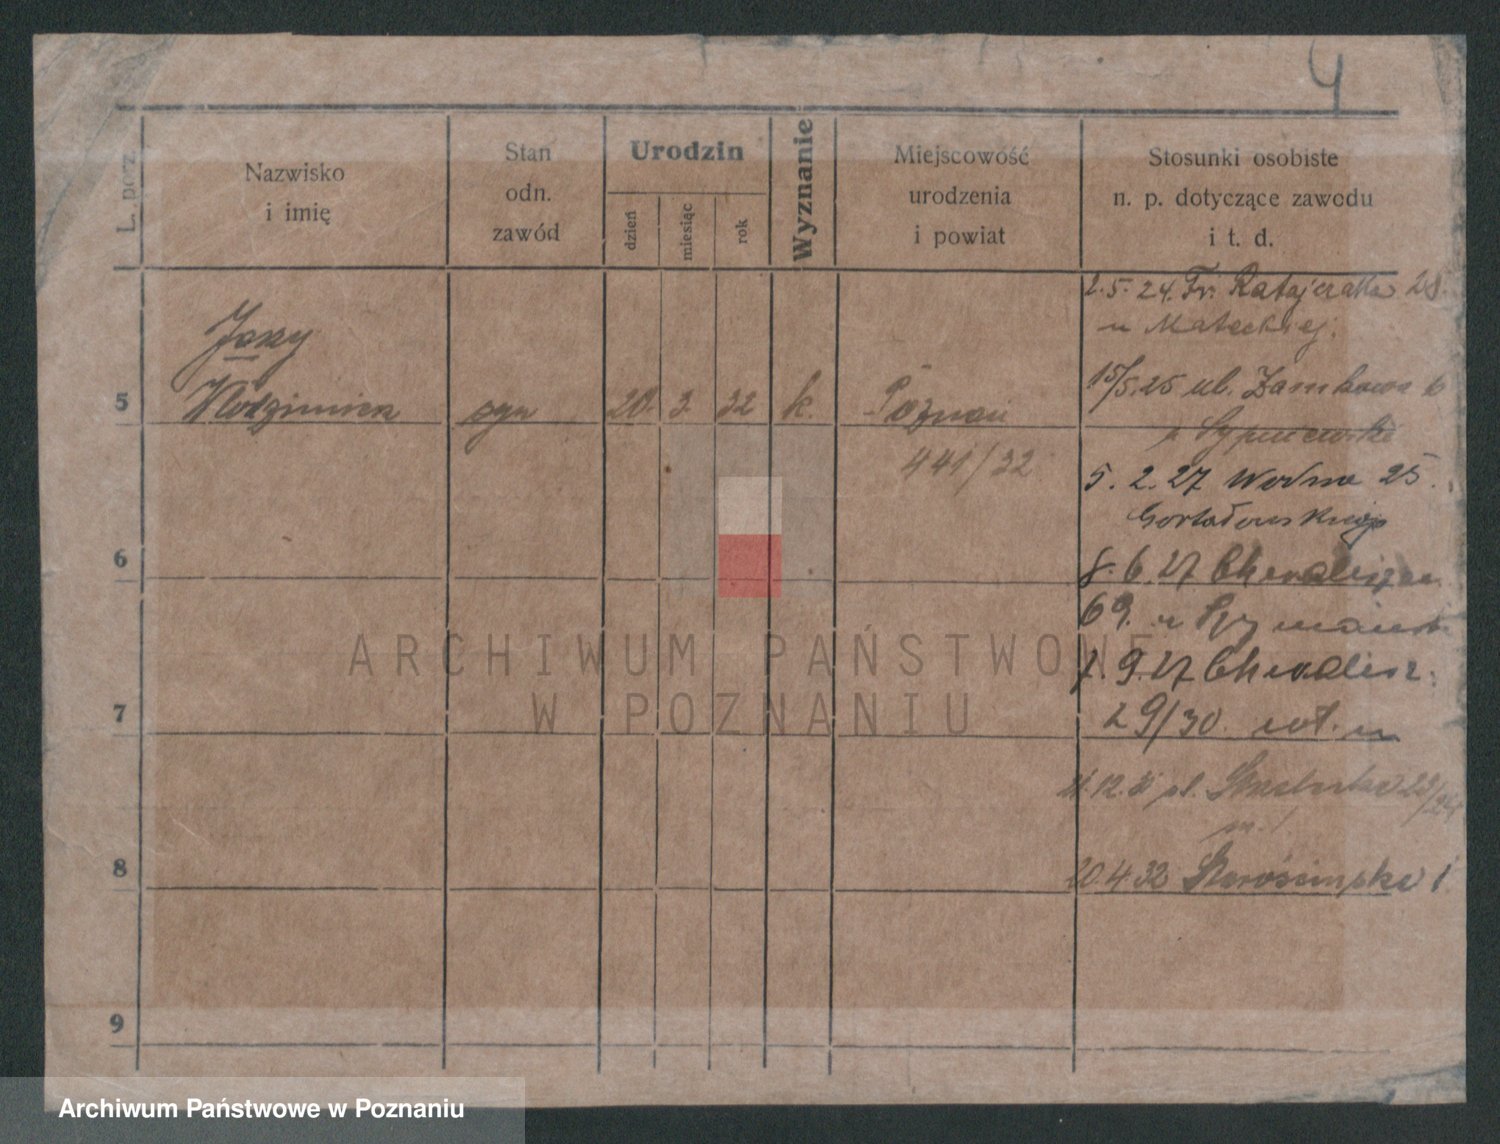 4
L. porz.
Nazwisko
i imię
Stan
odn.
zawód
Urodzin
dzień
miesiąc
rok
Wyznanie
Miejscowość
urodzenia
i powiat
Stosunki osobiste
n. p. dotyczące zawodu
i t. d.
5
Jerzy
Włodzimierz
syn
20.
3.
32
k.
Poznań
441/32
2.5.24. Fr. Ratajczaka 28.
u Mateckiej.
15/5.25 ul. Zamkowa 6
5. 2. 27 Wodna 25.
8. 6. 27
69. u
7. 9. 27
29/30. wł. m.
11.12.
pl.
22/24
m. 1
20.4.32
1
6
7
8
9
ARCHIWUM PAŃSTWOWE
W POZNANIU
Archiwum Państwowe w Poznaniu